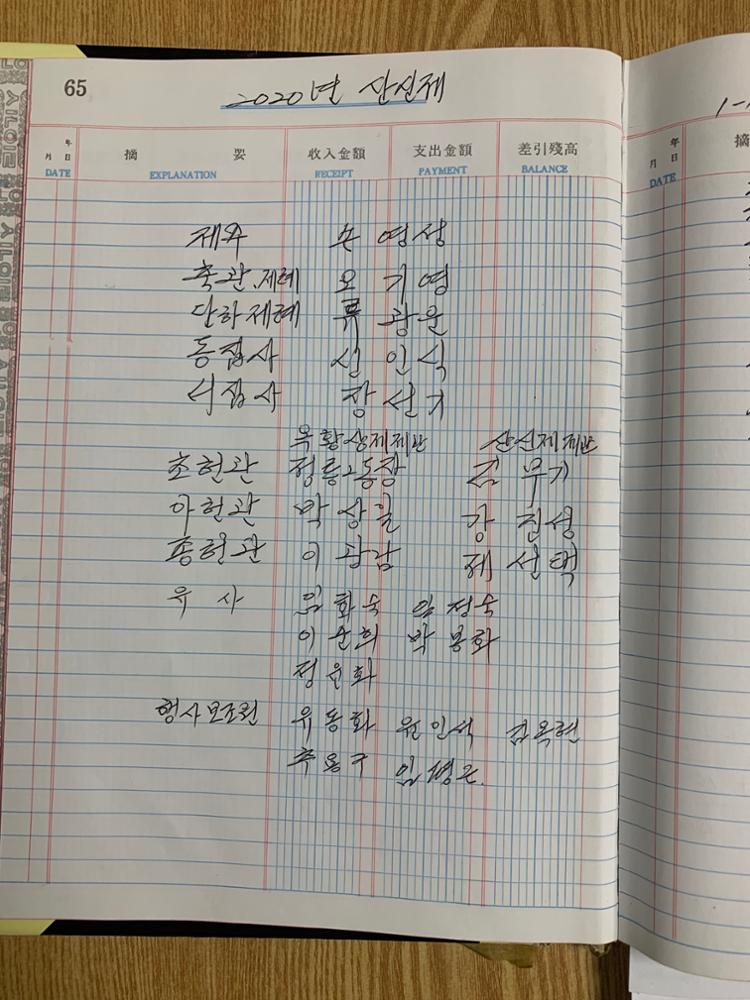 65
2020년 산신제
年
月 日
DATE
摘 要
EXPLANATION
收入金額
RECEIPT
支出金額
PAYMENT
差引殘高
BALANCE
제주 손영생
축관.제례 오기영
단하제례 류광윤
동집사 신인식
서집사 장선기
옥황상제제관 산신제제관
초헌관 정릉2동장 김무기
아헌관 박상길 강진성
종헌관 이광남 제선택
유사 임화숙 임정숙
이순희 박봉화
정운화
행사보조원 유동화 원인석 김옥현
추용구 임병근.
年
月 日
DATE
摘